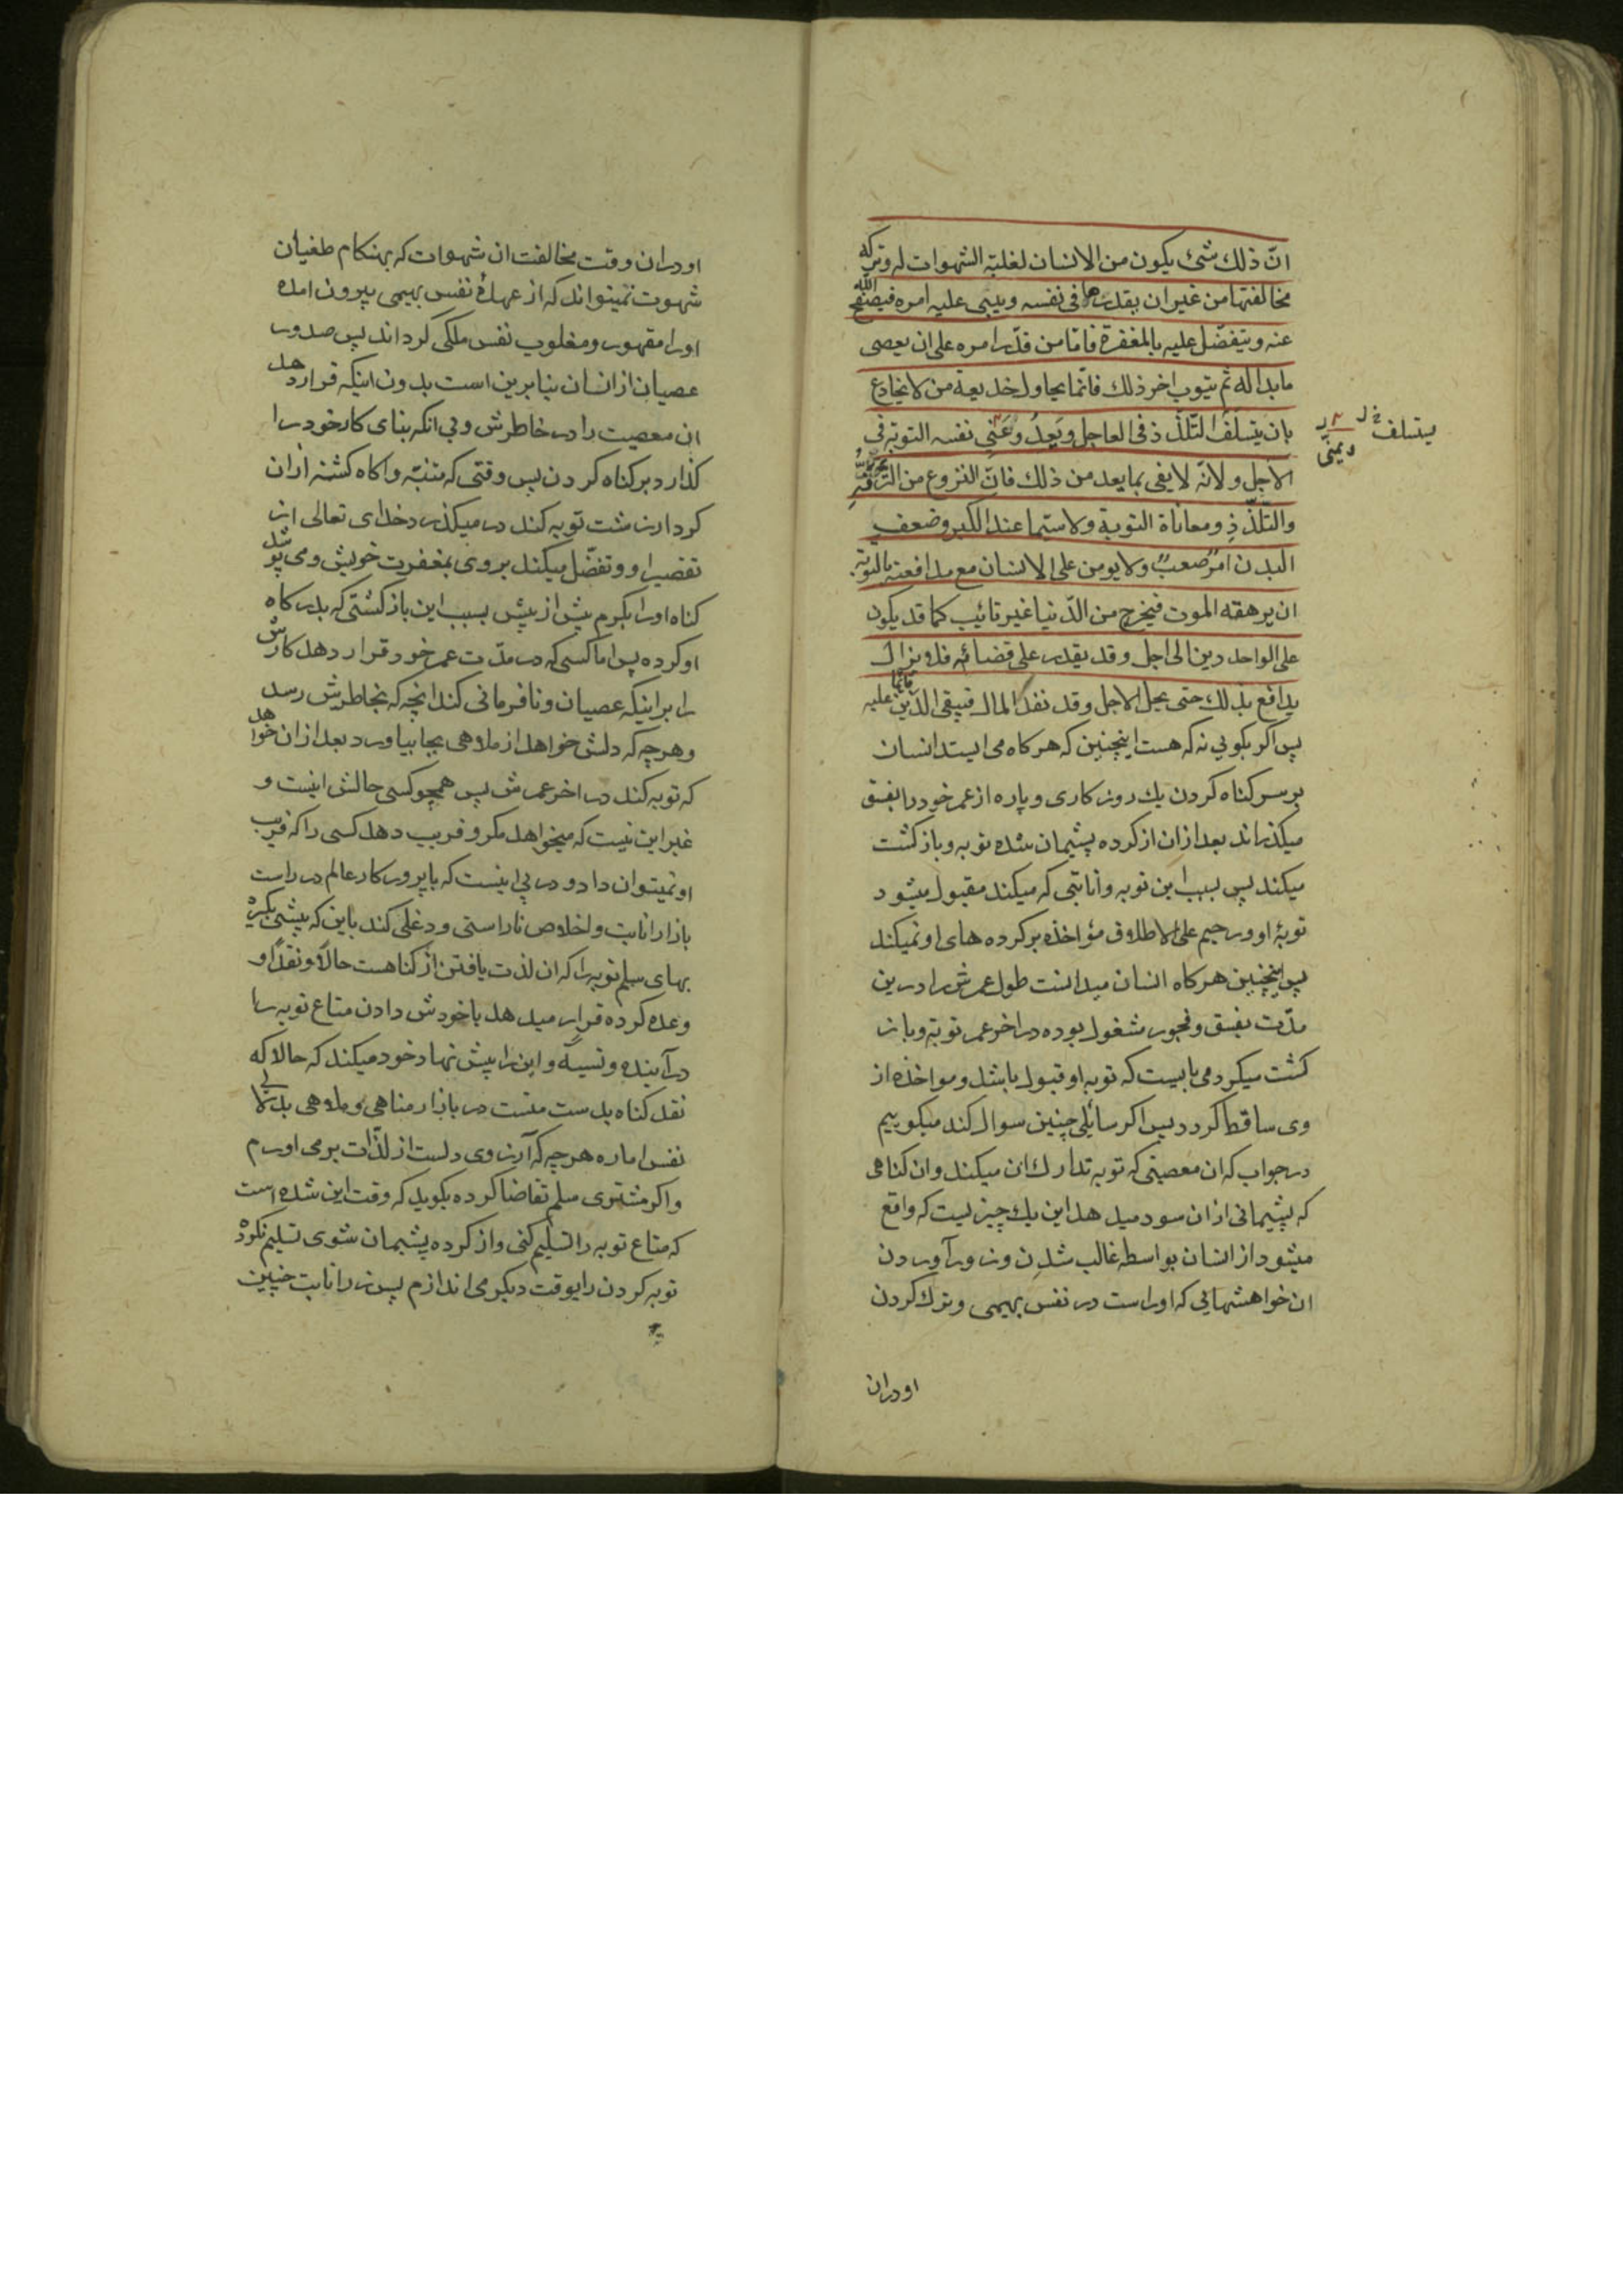 انّ ذلك شئ يكون من الانسان لغلبة الشهوات له وتركه
مخالفتها من غير ان يقدرها فى نفسه ويبنى عليه امره فيصفح الله
عنه ويتفضّل عليه بالمغفرة فامّا من قدّر امره على ان يعصى
ما بدا له ثم يتوب اخر ذلك فانّما يحاول خديعة من لا يخادع
بان يتسلف التلذذ فى العاجل ويعد وعنى نفسه التوبة فى
يتسلف
ويمنّى
الاجل ولانّه لا يفى بما يعد من ذلك فانّ النزوع من الترفّه
والتلذّذ ومعاناة التوبة ولا سيّما عند الكبر وضعف
البدن امر صعب ولا يومن على الانسان مع مدافعته بالتوبة
ان يرهقه الموت فيخرج من الدّنيا غير تائب كما قد يكون
على الواحد دين الى اجل وقد يقدر على قضائه فلا يزال
يدافع بذلك حتى يحل الاجل وقد نفد المال فيبقى الدّين قائما عليه
پس اكر بكويى نه كه هست اينچنين كه هركاه مى ايستد انسان
بر سر كناه كردن يك روزكارى و پاره از عمر خود را بفسق
ميكذراند بعد ازان از كرده پشيمان شده توبه و بازكشت
ميكند پس بسبب اين توبه و انابتى كه ميكند مقبول ميشود
توبهٔ او و رحيم على الاطلاق مؤاخذه بر كرده هاى او نميكند
پس اينچنين هركاه انسان ميدانست طول عمرش را درين
مدّت بفسق و فجور مشغول بوده در اخر عمر توبة و باز
كشت ميكرد مى بايست كه توبه او قبول باشد و مواخذه از
وى ساقط كردد پس اكر سائلى چنين سوال كند ميكوييم
در جواب كه ان معصيتى كه توبه تدارك ان ميكند و ان كناهى
كه پشيمانى ازان سود ميدهد اين يك چيزيست كه واقع
ميشود از انسان بواسطه غالب شدن و زور آوردن
ان خواهشهايى كه او راست در نفس بهيمى و ترك كردن
او دران
او دران وقت مخالفت ان شهوات كه بهنكام طغيان
شهوت نميتواند كه از عهدهٔ نفس بهيمى بيرون امده
او را مقهور و مغلوب نفس ملكى كرداند پس صدور
عصيان از انسان بنا برين است بدون اينكه قرار دهد
ان معصيت را در خاطرش و بى انكه بناى كار خود را
كذارد بر كناه كردن پس وقتى كه متنبّه و اكاه كشته ازان
كردار زشت توبه كند در ميكذرد خداى تعالى از
تقصير او و تفضّل ميكند بر وى بمغفرت خويش و مى پوشد
كناه او را بكرم بيش از پيش بسبب اين بازكشتى كه بدركاه
او كرده پس اما كسى كه در مدّت عمر خود قرار دهد كارش
را بر اينكه عصيان و نافرمانى كند انچه كه بخاطرش رسد
و هرچه كه دلش خواهد از ملاهى بجا بياورد بعد ازان خواهد
كه توبه كند در اخر عمرش پس همچو كسى حالش اينست و
غير اين نيست كه ميخواهد مكر و فريب دهد كسى را كه فريب
او نميتوان داد و در پى اينست كه با پروركار عالم در راست
بازار انابت و اخلاص ناراستى و دغلى كند باين كه پيشى بكيرد
بهاى سلم توبه را كه ان لذت يافتن از كناهست حالاً و نقداً و
وعده كرده قرار ميدهد با خودش دادن متاع توبه را
در آينده و نسيه و اين را پيش نهاد خود ميكند كه حالا كه
نقد كناه بدست منست در بازار مناهى و ملاهى بدلالى
نفس اماره هرچه كه آرزوى دلست از لذّات برمى اورم
و اكر مشترى سلم تقاضا كرده بكويد كه وقت اين شده است
كه متاع توبه را تسليم كنى و از كرده پشيمان شوى تسليم نكرده
توبه كردن را بوقت ديكر مى اندازم پس زر انابت چنين